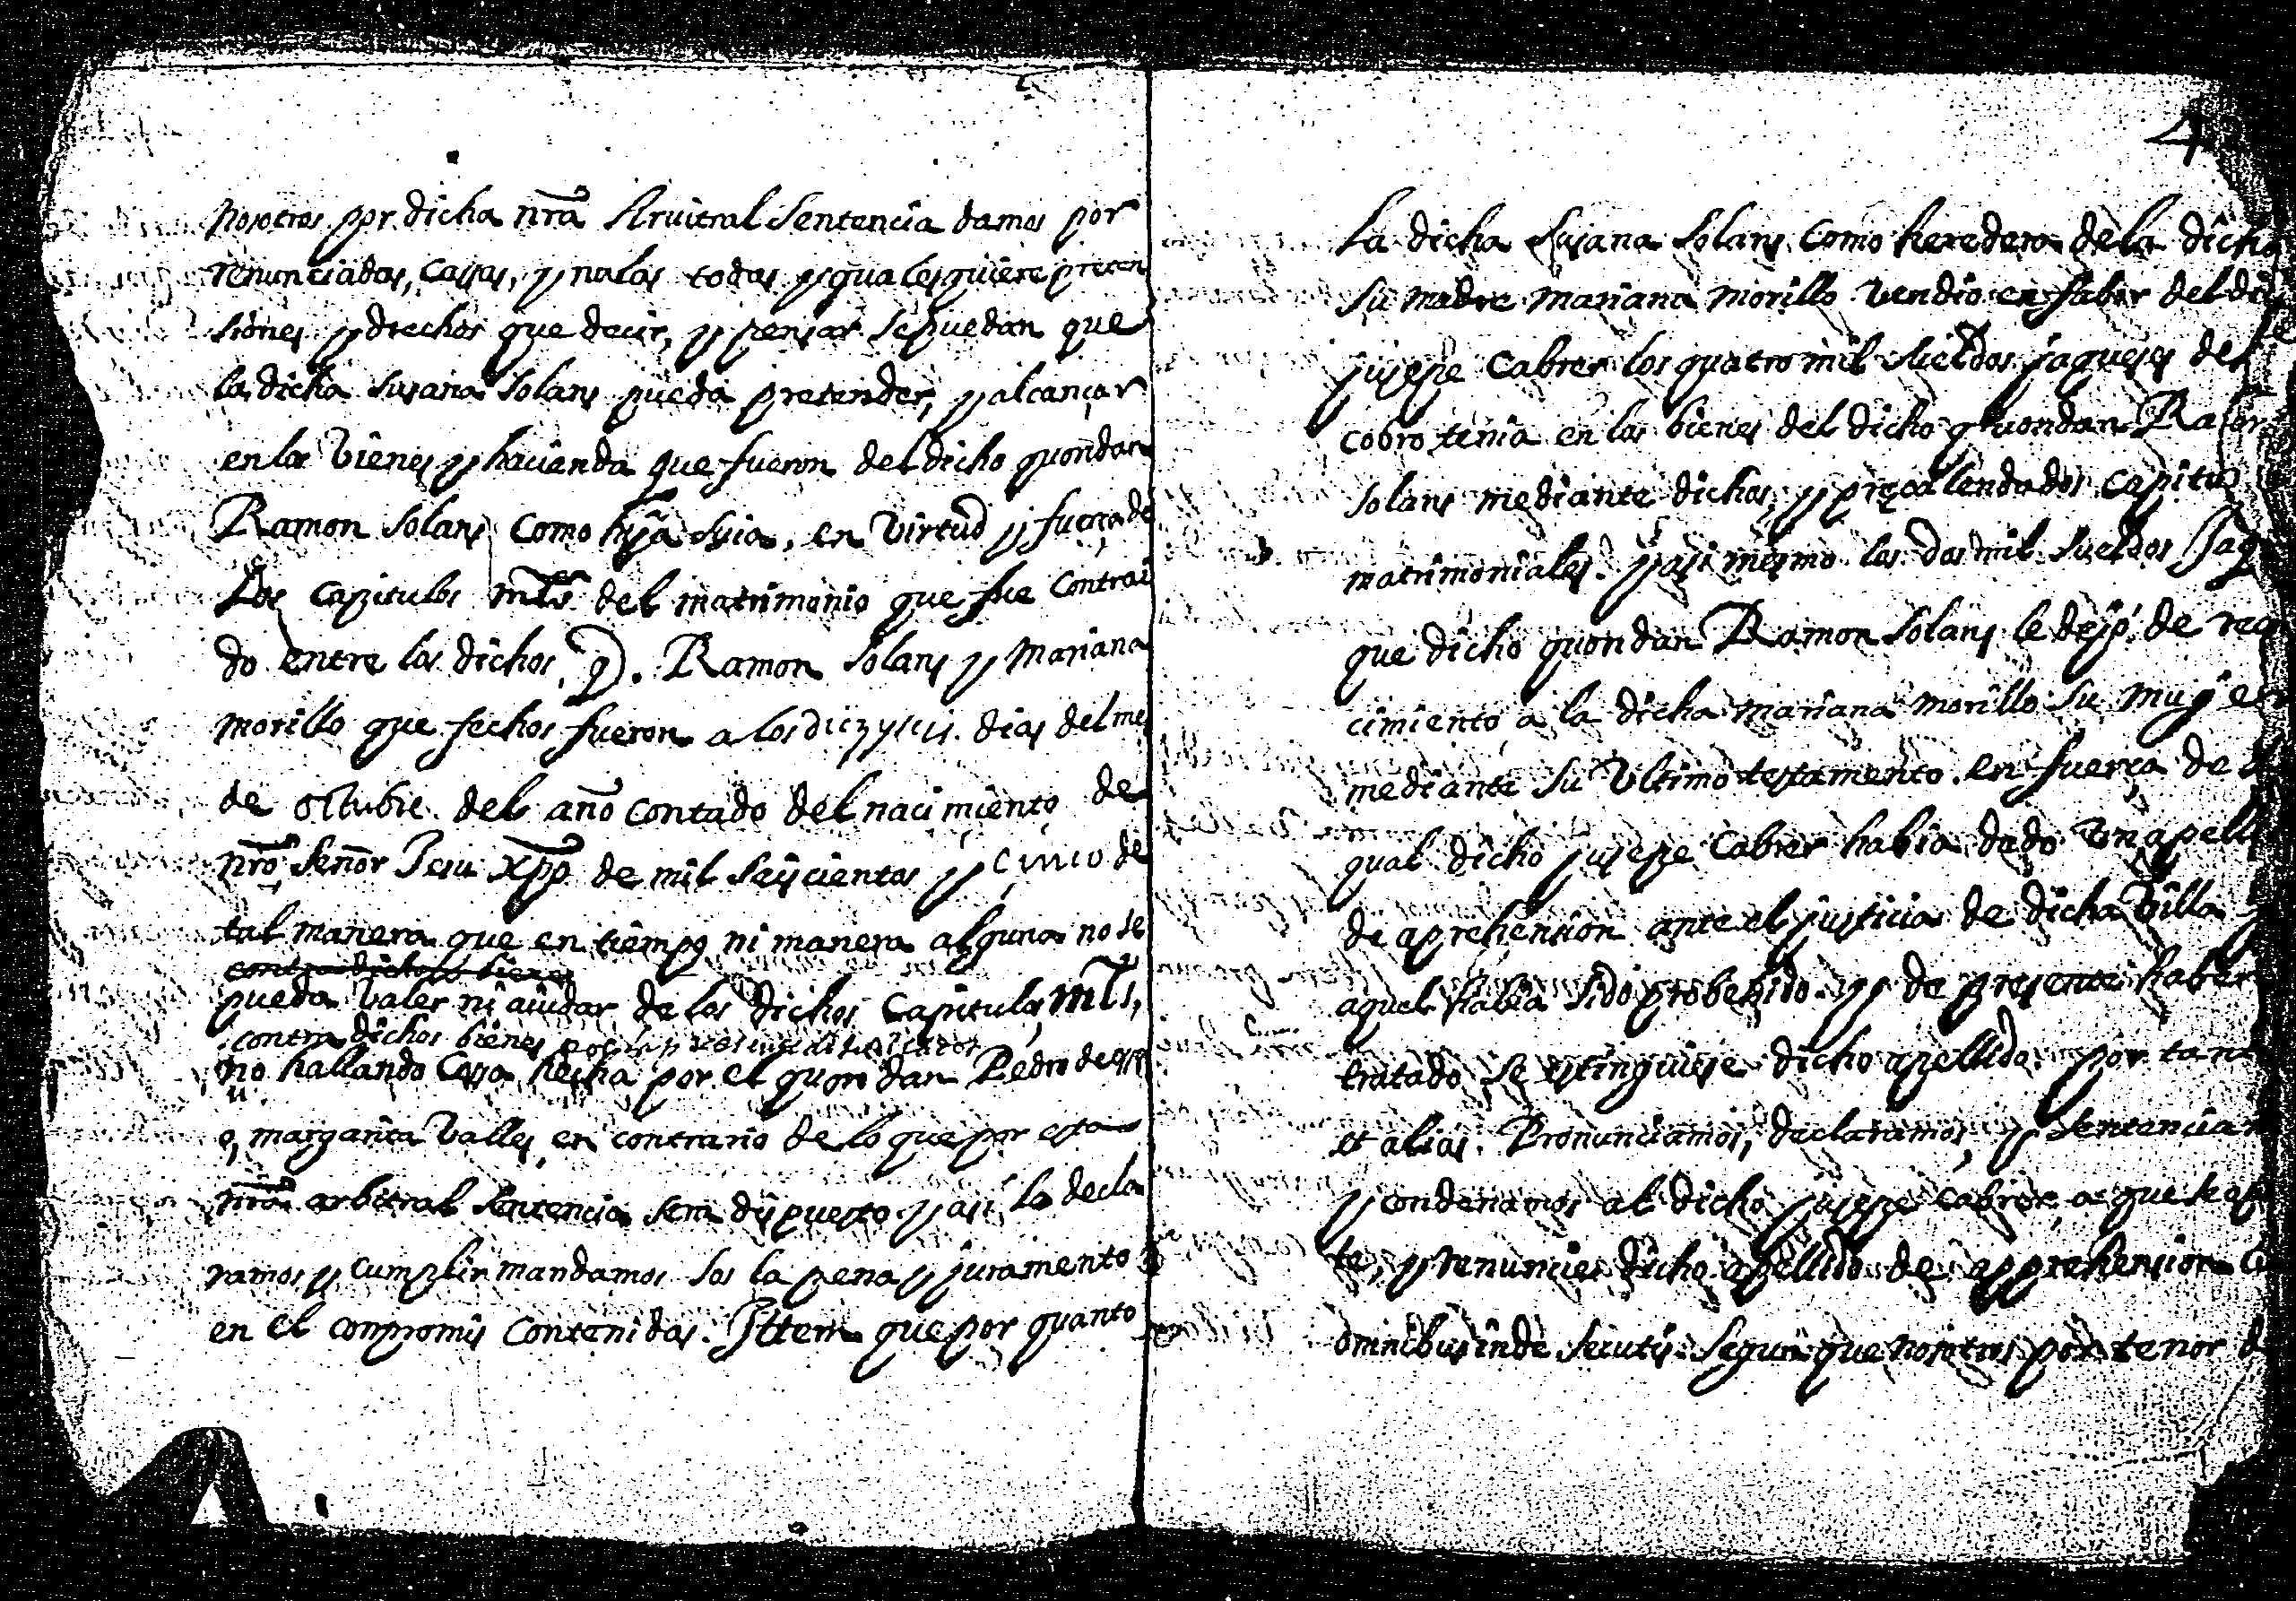 nosotros por dicha nrã Aruitral Sentencia damos por
renunciados, cassas, y nulas todas y qualesquiere preten
siones y drechos que decir, y pensar se puedan que
la dicha Susana Solans pueda pretender, y alcançar
en los Vienes y hacienda que fueron del dicho quondan
Ramon Solans como hija suia, en virtud y fuerça de
Los Capitulos mls del matrimonio que fue Contrai
do entre los dichos q. Ramon Solans y Mariana
morillo que fechos fueron a los diez y seis dias del mes
de octubre del año contado del nacimiento de
nrõ Señor Jesu xpo de mil seiscientos y cinco de
tal manera que en tiempo ni manera alguna no se
contra dichos bienes
pueda valer ni aiudar de los dichos Capitulos mls,
contra dichos bienes
no hallando Cossa hecha por el quondan Pedro de
o, margarita Valles en contrario de lo que por esta
nrã arbitral Sentencia sera dispuesto y asi lo decla
ramos y cumplir mandamos sos la pena y juramento
en el conpromis Contenidas. Ittem que por quanto
4
La dicha Susana Solans Como heredera de la dicha
su madre Mariana morillo Vendio en fabor del dicho
jusepe Cabrer los quatro mil sueldos jaqueses de
cobro tenia en los bienes del dicho quondan Ramon
Solans mediante dichos, y precalendados Capitu
matrimoniales. y asi mesmo los dos mil Sueldos Jaq
que dicho quondan Ramon Solans le dejó de reco
cimiento a la dicha Mariana Morillo su mujer
mediante su Ultimo testamento. en fuerça de
qual dicho jusepe Cabrer habia dado Un apelli
de aprehension ante el justicia de dicha Villa y
aquel habia sido probehido. y de presente haber
tratado se estinguiese dicho apellido. por tan
et alias. Pronunciamos, declaramos, y Sentencia
y condenamos al dicho jusepe Cabrer a que se apar
te, y renuncie dicho apellido de apprehension C
omnibus inde secutis. Segun que nosotros por tenor d